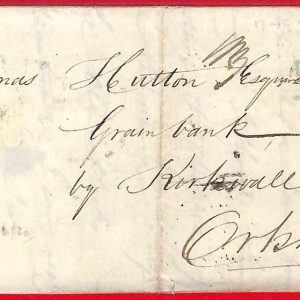 nds Hutton Esquire
Grainbank
by Kirkwall
Orkn